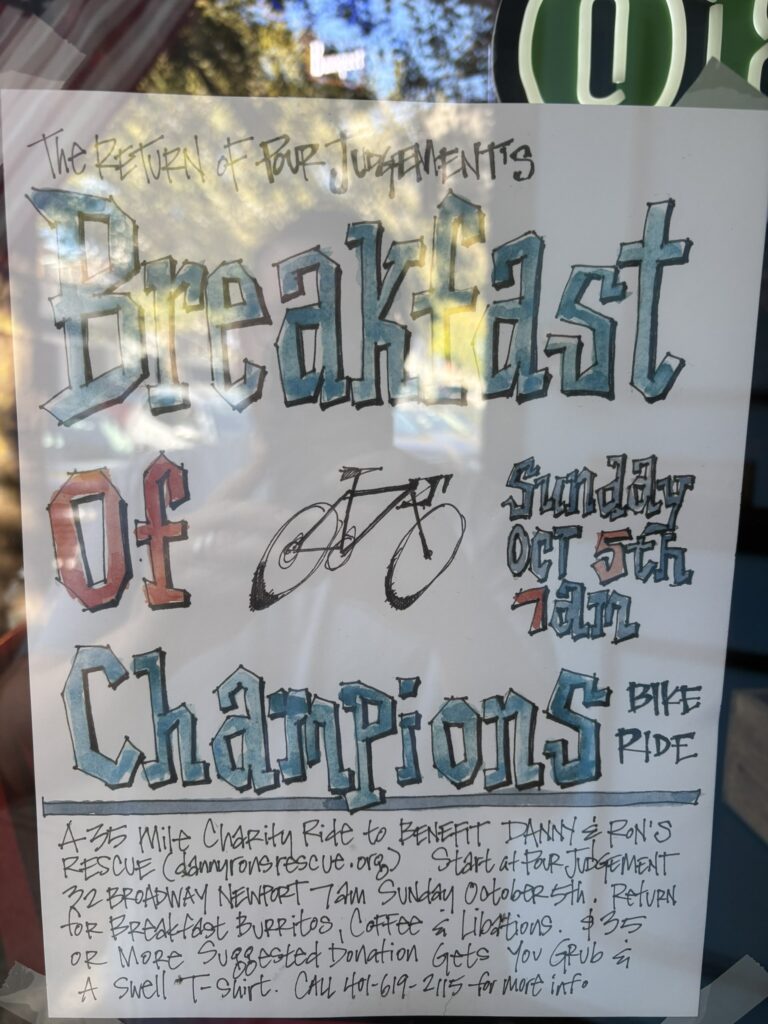 The Return of Pour Judgement's
Breakfast
Of
Sunday
Oct 5th
7am
Champions
BIKE
RIDE
A 35 Mile Charity Ride to BENEFIT DANNY & RON'S
RESCUE (dannyronsrescue.org) Start at Pour Judgement
32 BROADWAY NEWPORT 7am Sunday October 5th. Return
for Breakfast Burritos, Coffee & Libations. $35
or More Suggested Donation Gets You Grub &
A Swell T-Shirt. CALL 401-619-2115 for more info